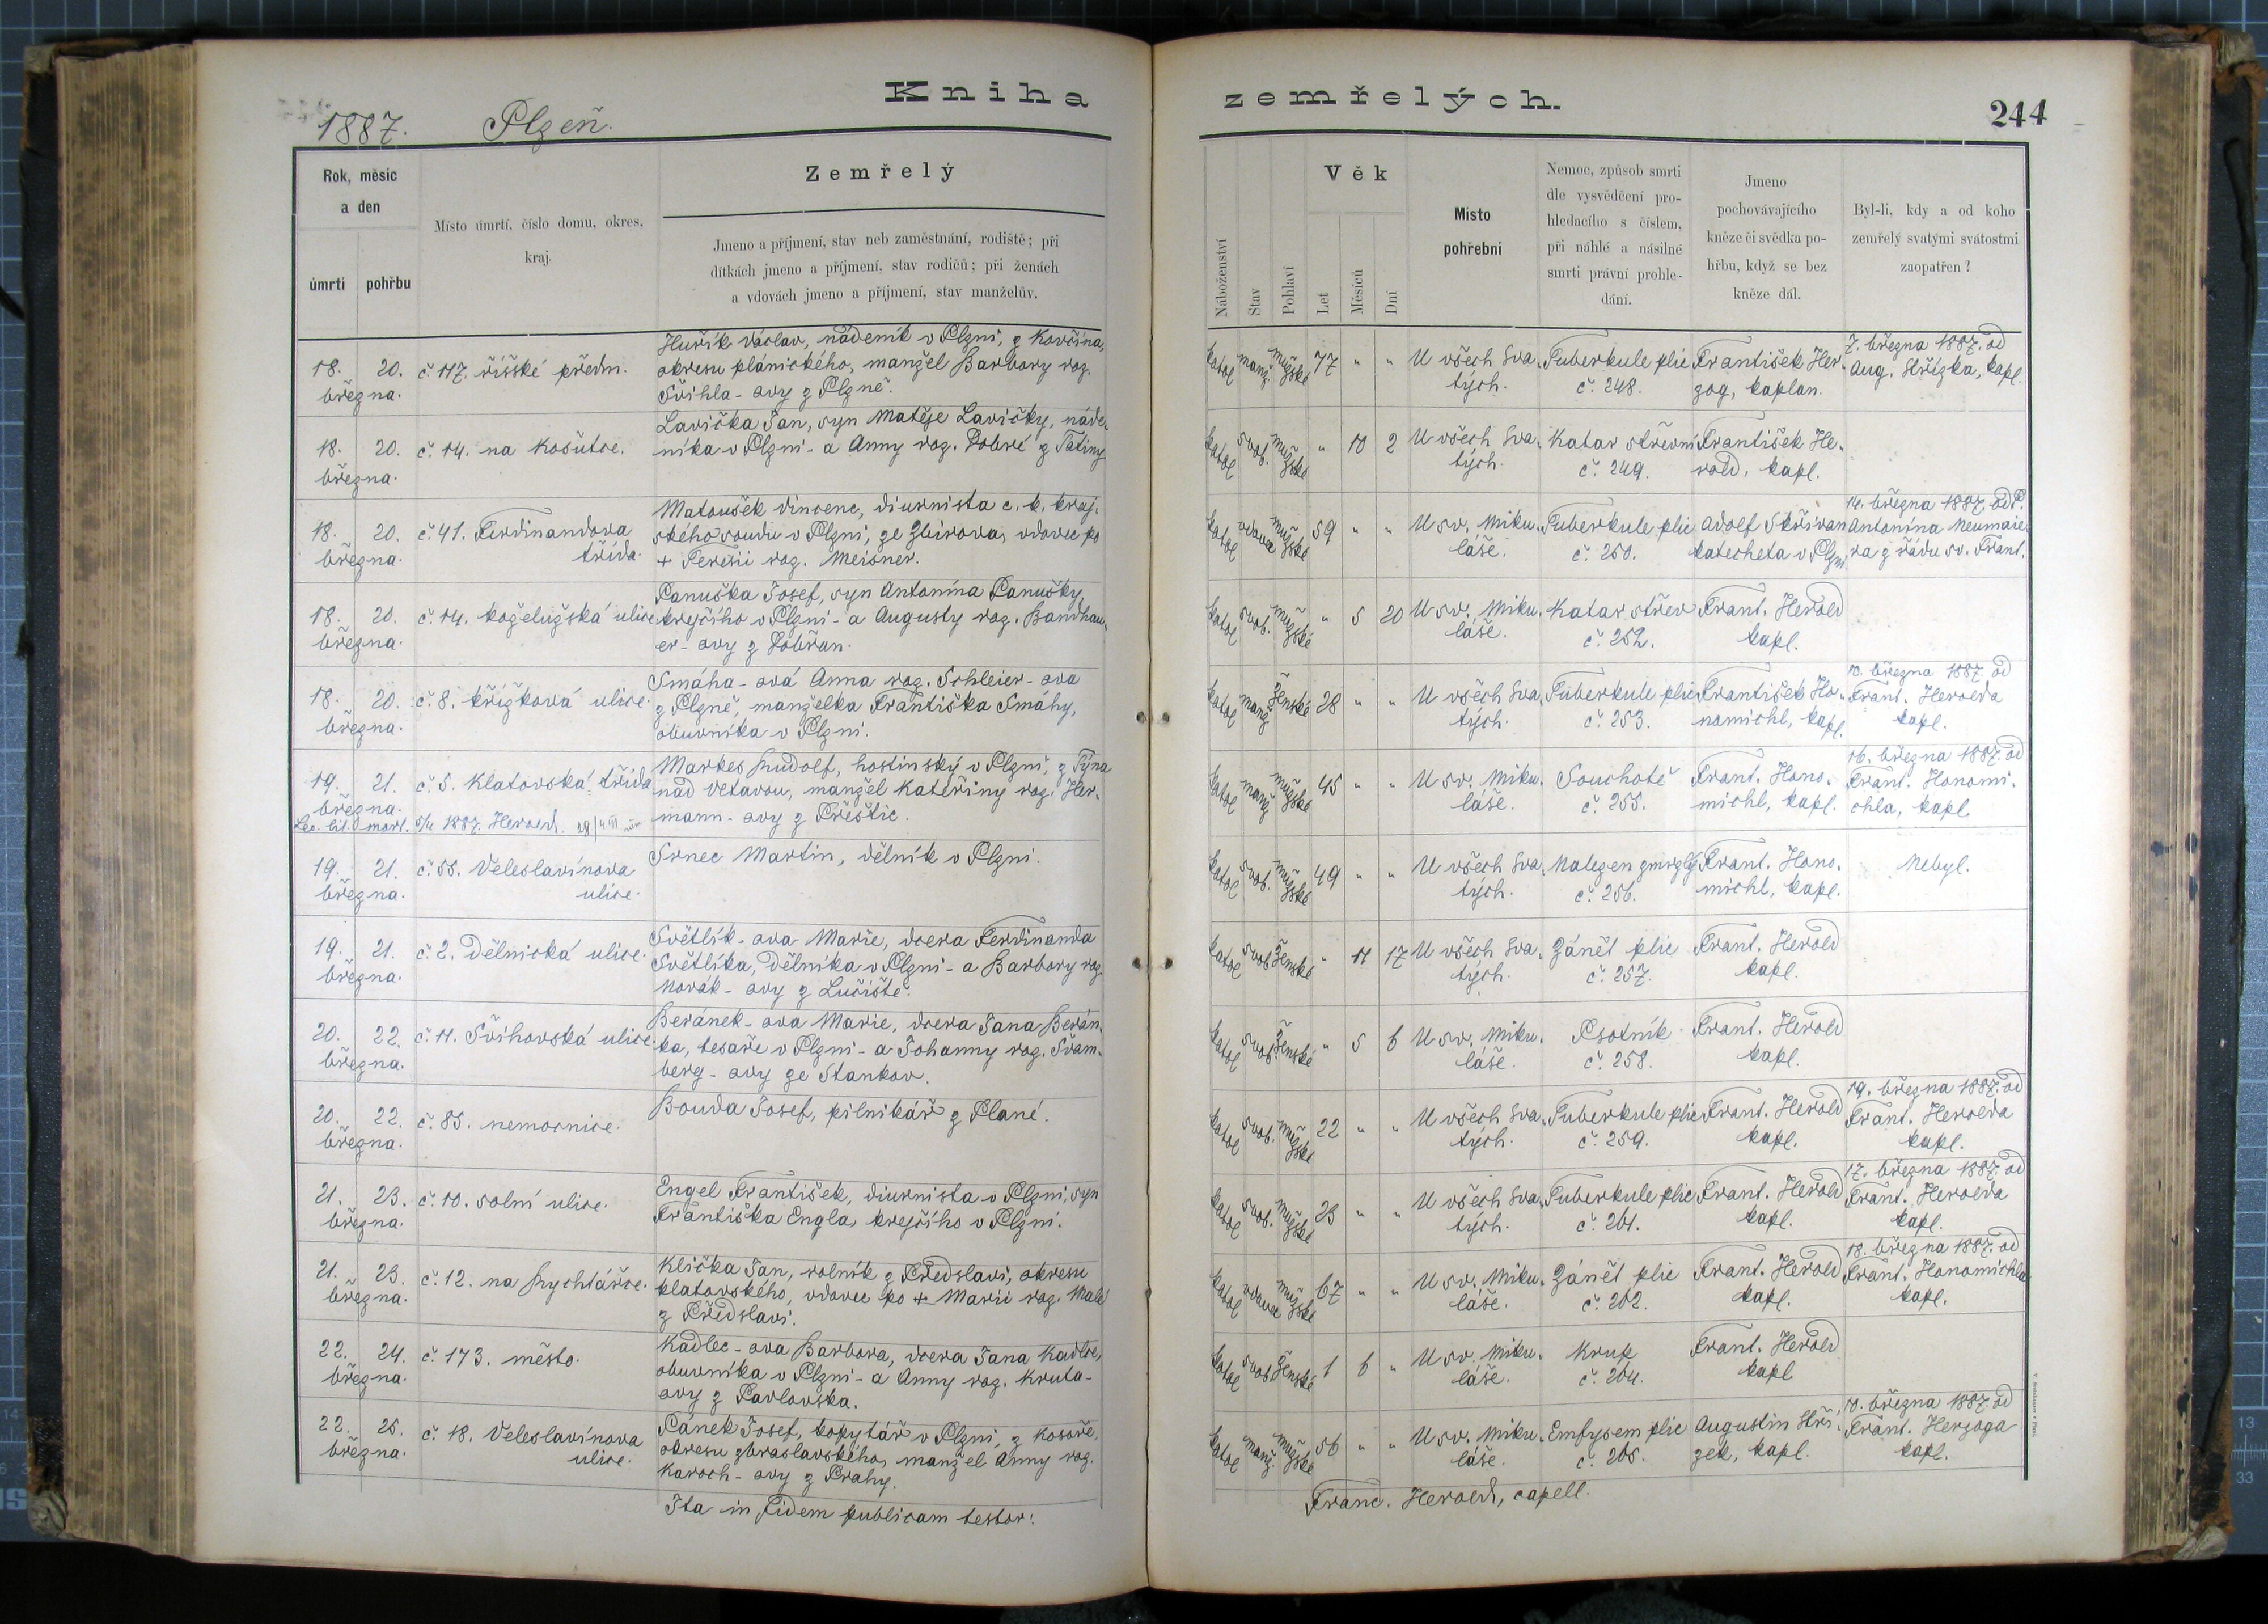 Kniha zemřelých.
1887. Plzeň.
244
Rok, měsíc a den
úmrtí
pohřbu
Místo úmrtí, číslo domu, okres, kraj.
Zemřelý
Jmeno a příjmení, stav neb zaměstnání, rodiště; při
dítkách jmeno a příjmení, stav rodičů; při ženách
a vdovách jmeno a příjmení, stav manželův.
Náboženství
Stav
Pohlaví
Věk
Let
Měsíců
Dní
Místo
pohřební
Nemoc, způsob smrti
dle vysvědčení pro-
hledacího s číslem,
při náhlé a násilné
smrti právní prohle-
dání.
Jmeno
pochovávajícího
kněze či svědka po-
hřbu, když se bez
kněze dál.
Byl-li, kdy a od koho
zemřelý svatými svátostmi
zaopatřen?
18. 20.
března.
č. 117. říšské předm.
Huřík Václav, nádeník v Plzni, z Kovčína,
okresu plánického, manžel Barbory roz.
Švihla-ovy z Plzně.
katol manž. mužské 77 " "
U všech Sva-
tých.
Tuberkule plic
č. 248.
František Her-
zog, kaplan.
7. března 1887. od
Aug. Střízka, kapl.
18. 20.
března.
č. 14. na Košutce.
Lavička Jan, syn Matěje Lavičky, náde-
níka v Plzni - a Anny roz. Dobré z Tatiny
katol svob. mužské " 10 2
U všech Sva-
tých.
Katar střevní
č. 249.
František He-
rold, kapl.
18. 20.
března.
č. 41. Ferdinandova
třída.
Matoušek Vincenc, diurnista c. k. kraj-
ského soudu v Plzni, ze Zbirova, vdovec po
+ Teresii roz. Meisner.
katol vdovec mužské 59 " "
U sv. Miku-
láše.
Tuberkule plic
č. 250.
Adolf Skřivan
katecheta v Plzni.
14. března 1887. od P.
Antonína Neumaie-
ra z řádu sv. Frant.
18. 20.
března.
č. 14. koželužská ulice
Panuška Josef, syn Antonína Panušky,
krejčího v Plzni - a Augusty roz. Bandhau-
er-ovy z Dobřan.
katol svob. mužské " 5 20
U sv. Miku-
láše.
Katar střev
č. 252.
Frant. Herold
kapl.
18. 20.
března.
č. 8. křížková ulice.
Smáha-ová Anna roz. Schleier-ova
z Plzně, manželka Františka Smáhy,
obuvníka v Plzni.
katol manž. Ženské 28 " "
U všech Sva-
tých.
Tuberkule plic
č. 253.
František Ho-
nomichl, kapl.
10. března 1887. od
Frant. Herolda
kapl.
19. 21.
března.
č. 5. Klatovská třída
Markes Rudolf, hostinský v Plzni, z Týna
nad Vltavou, manžel Kateřiny roz. Her-
mann-ovy z Přeštic.
1887. Herold.
katol manž. mužské 45 " "
U sv. Miku-
láše.
Souchotě
č. 255.
Frant. Hono-
michl, kapl.
16. března 1887. od
Frant. Honomi-
chla, kapl.
19. 21.
března.
č. 55. Veleslavínova
ulice.
Srnec Martin, dělník v Plzni.
katol svob. mužské 49 " "
U všech Sva-
tých.
Nalezen zmrzlý
č. 256.
Frant. Hono-
michl, kapl.
Nebyl.
19. 21.
března.
č. 2. Dělnická ulice.
Světlík-ova Marie, dcera Ferdinanda
Světlíka, Dělníka v Plzni - a Barbory roz.
Novák-ovy z Lučiště.
katol svob. Ženské " 11 17
U všech Sva-
tých.
Zánět plic
č. 257.
Frant. Herold
kapl.
20. 22.
března.
č. 11. Švihovská ulice.
Beránek-ova Marie, dcera Jana Berán-
ka, tesaře v Plzni - a Johanny roz. Švam-
berg-ovy ze Stankov.
katol svob. Ženské " 5 6
U sv. Miku-
láše.
Psotník
č. 258.
Frant. Herold
kapl.
20. 22.
března.
č. 85. nemocnice.
Bouda Josef, pilnikář z Plané.
katol svob. mužské 22 " "
U všech Sva-
tých.
Tuberkule plic
č. 259.
Frant. Herold
kapl.
19. března 1887. od
Frant. Herolda
kapl.
21. 23.
března.
č. 10. solní ulice.
Engel František, diurnista v Plzni, syn
Františka Engla, krejčího v Plzni.
katol svob. mužské 23 " "
U všech Sva-
tých.
Tuberkule plic
č. 261.
Frant. Herold
kapl.
17. března 1887. od
Frant. Herolda
kapl.
21. 23.
března.
č. 12. na Rychtářce.
Klička Jan, rolník z Předslavi, okresu
klatovského, vdovec po + Marii roz. Malé
z Předslavi.
katol vdovec mužské 67 " "
U sv. Miku-
láše.
Zánět plic
č. 262.
Frant. Herold
kapl.
18. března 1887. od
Frant. Honomichla
kapl.
22. 24.
března.
č. 173. město.
Kadlec-ova Barbora, dcera Jana Kadlce,
obuvníka v Plzni - a Anny roz. Kruta-
ovy z Pavlovska.
katol svob. Ženské 1 6 "
U sv. Miku-
láše.
Krup
č. 264.
Frant. Herold
kapl.
22. 25.
března.
č. 18. Veleslavínova
ulice.
Pánek Josef, kopytář v Plzni, z Kosoře,
okresu zbraslavského, manžel Anny roz.
Karoch-ovy z Prahy.
katol manž. mužské 56 " "
U sv. Miku-
láše.
Emfysem plic
č. 265.
Augustin Stří-
zek, kapl.
10. března 1887. od
Frant. Herzoga
kapl.
Ita in fidem publicam testor:
Franc. Herold, capell.